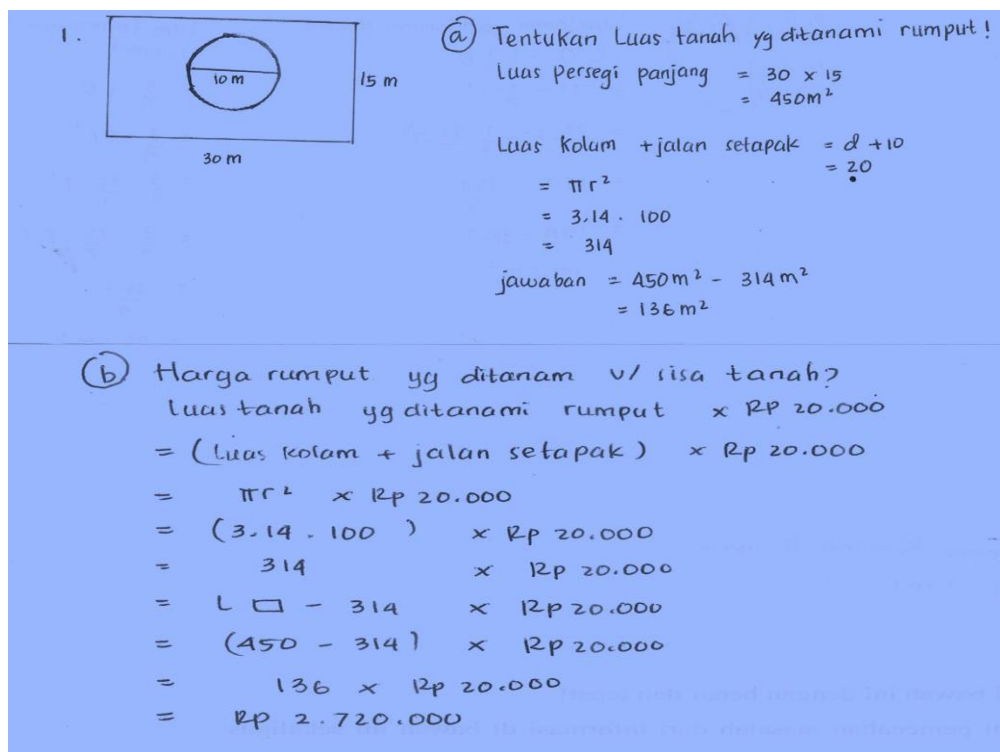 1.
10 m
15 m
30 m
ⓐ Tentukan Luas tanah yg ditanami rumput!
Luas Persegi panjang = 30 x 15
= 450m²
Luas Kolam + jalan setapak = d + 10
= 20
= πr²
= 3.14 . 100
= 314
jawaban = 450m² - 314m²
= 136m²
ⓑ Harga rumput yg ditanam u/ sisa tanah?
luas tanah yg ditanami rumput x RP 20.000
= (Luas kolam + jalan setapak) x Rp 20.000
= πr² x Rp 20.000
= (3.14 . 100) x Rp 20.000
= 314 x Rp 20.000
= L □ - 314 x Rp 20.000
= (450 - 314) x Rp 20.000
= 136 x Rp 20.000
= Rp 2.720.000